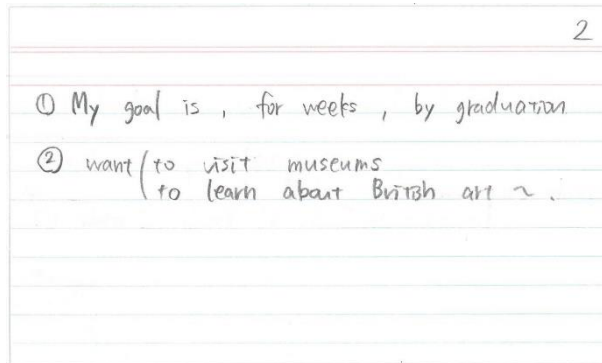 2
① My goal is , for weeks , by graduation
② want ( to visit museums
to learn about British art ~ .